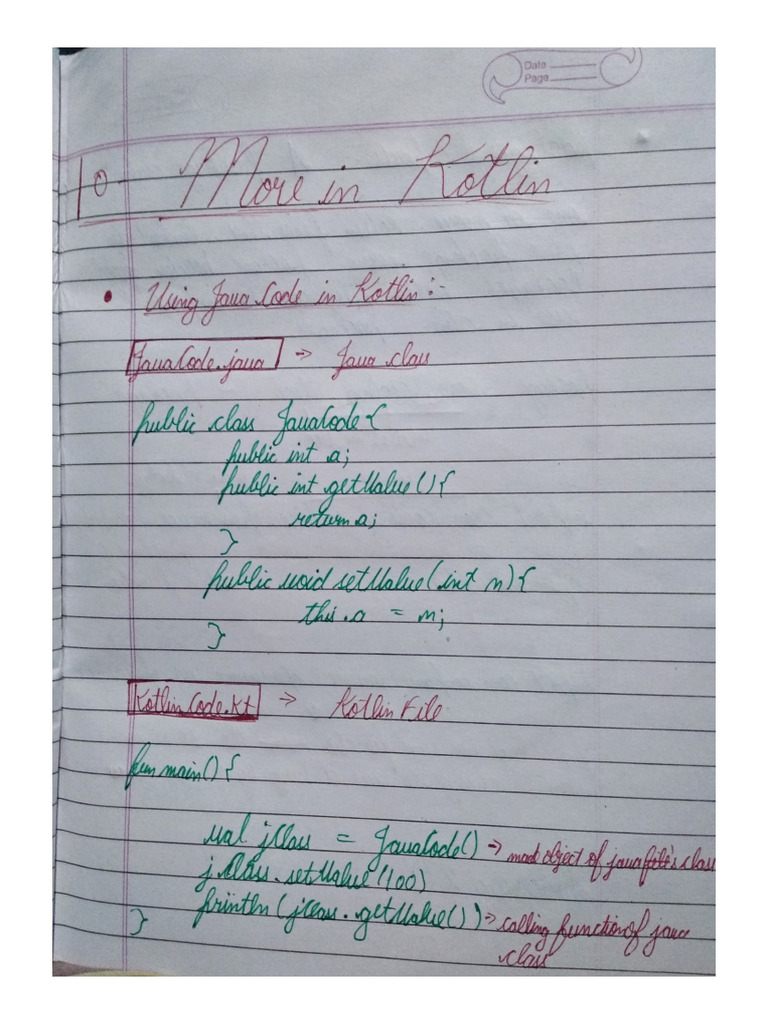 Date
Page
10 More in Kotlin
• Using Java Code in Kotlin :-
JavaCode.java → Java class
public class JavaCode {
public int a;
public int getValue () {
return a;
}
public void setValue (int n) {
this.a = n;
}
KotlinCode.kt → Kotlin File
fun main() {
val jClass = JavaCode() → made object of java file's class
jClass.setValue (100)
println (jClass.getValue()) → calling function of java
}
class